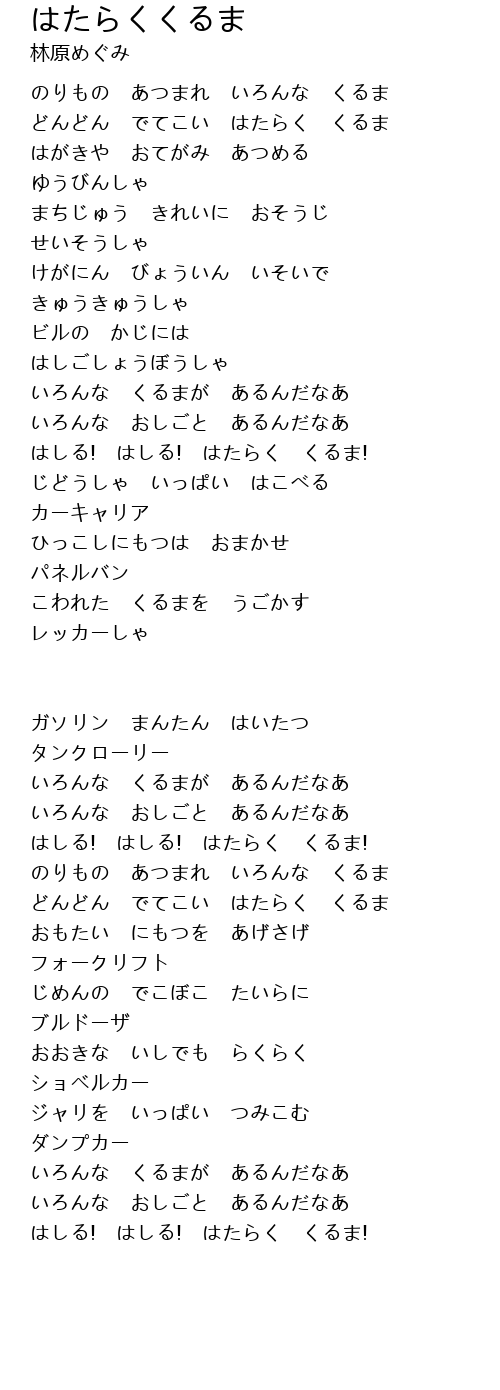 はたらくくるま
林原めぐみ
のりもの　あつまれ　いろんな　くるま
どんどん　でてこい　はたらく　くるま
はがきや　おてがみ　あつめる
ゆうびんしゃ
まちじゅう　きれいに　おそうじ
せいそうしゃ
けがにん　びょういん　いそいで
きゅうきゅうしゃ
ビルの　かじには
はしごしょうぼうしゃ
いろんな　くるまが　あるんだなあ
いろんな　おしごと　あるんだなあ
はしる!　はしる!　はたらく　くるま!
じどうしゃ　いっぱい　はこべる
カーキャリア
ひっこしにもつは　おまかせ
パネルバン
こわれた　くるまを　うごかす
レッカーしゃ
ガソリン　まんたん　はいたつ
タンクローリー
いろんな　くるまが　あるんだなあ
いろんな　おしごと　あるんだなあ
はしる!　はしる!　はたらく　くるま!
のりもの　あつまれ　いろんな　くるま
どんどん　でてこい　はたらく　くるま
おもたい　にもつを　あげさげ
フォークリフト
じめんの　でこぼこ　たいらに
ブルドーザ
おおきな　いしでも　らくらく
ショベルカー
ジャリを　いっぱい　つみこむ
ダンプカー
いろんな　くるまが　あるんだなあ
いろんな　おしごと　あるんだなあ
はしる!　はしる!　はたらく　くるま!